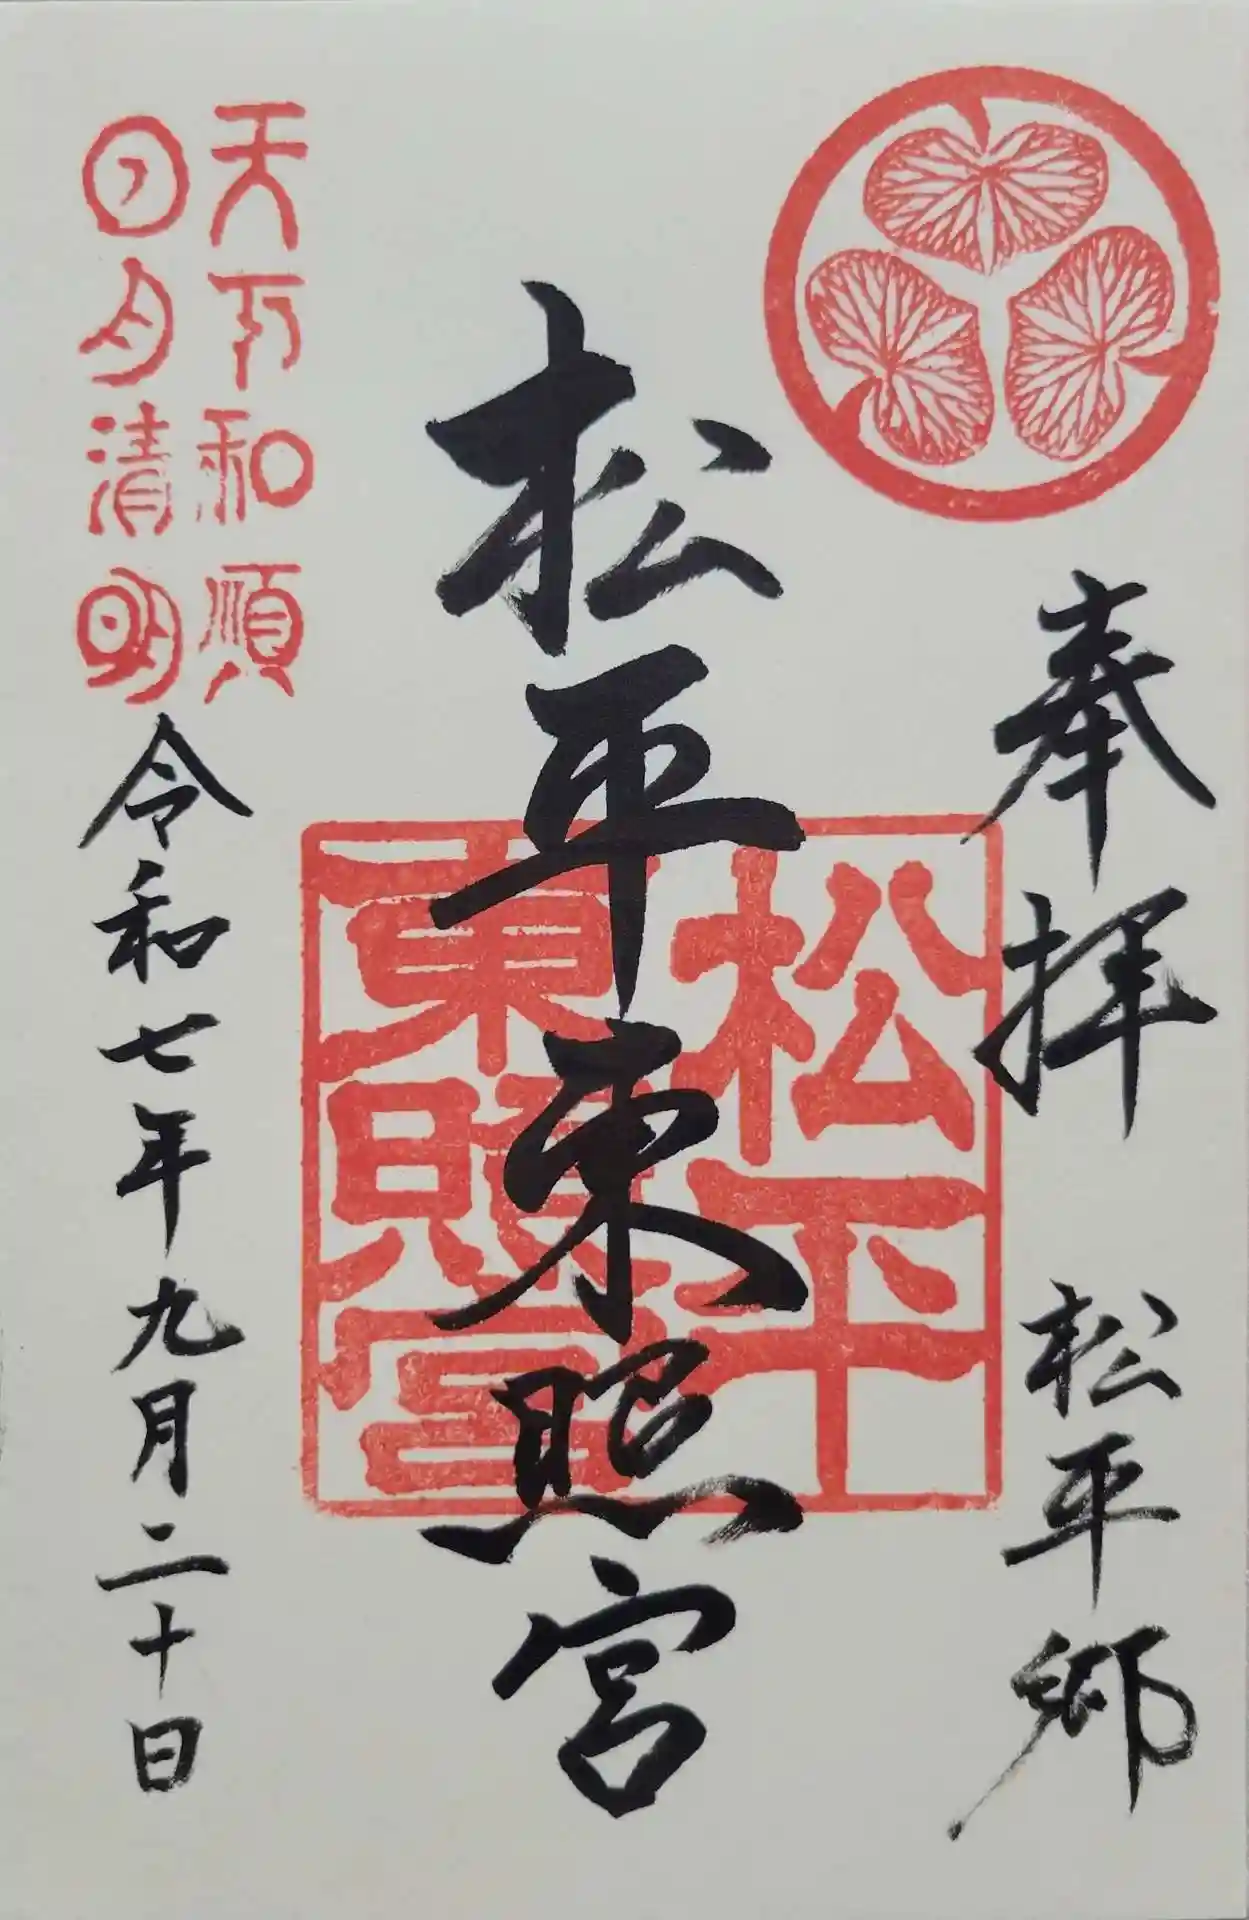 奉拝 松平郷
松平東照宮
松平
東照宮
天下和順
日月清明
令和七年九月二十日